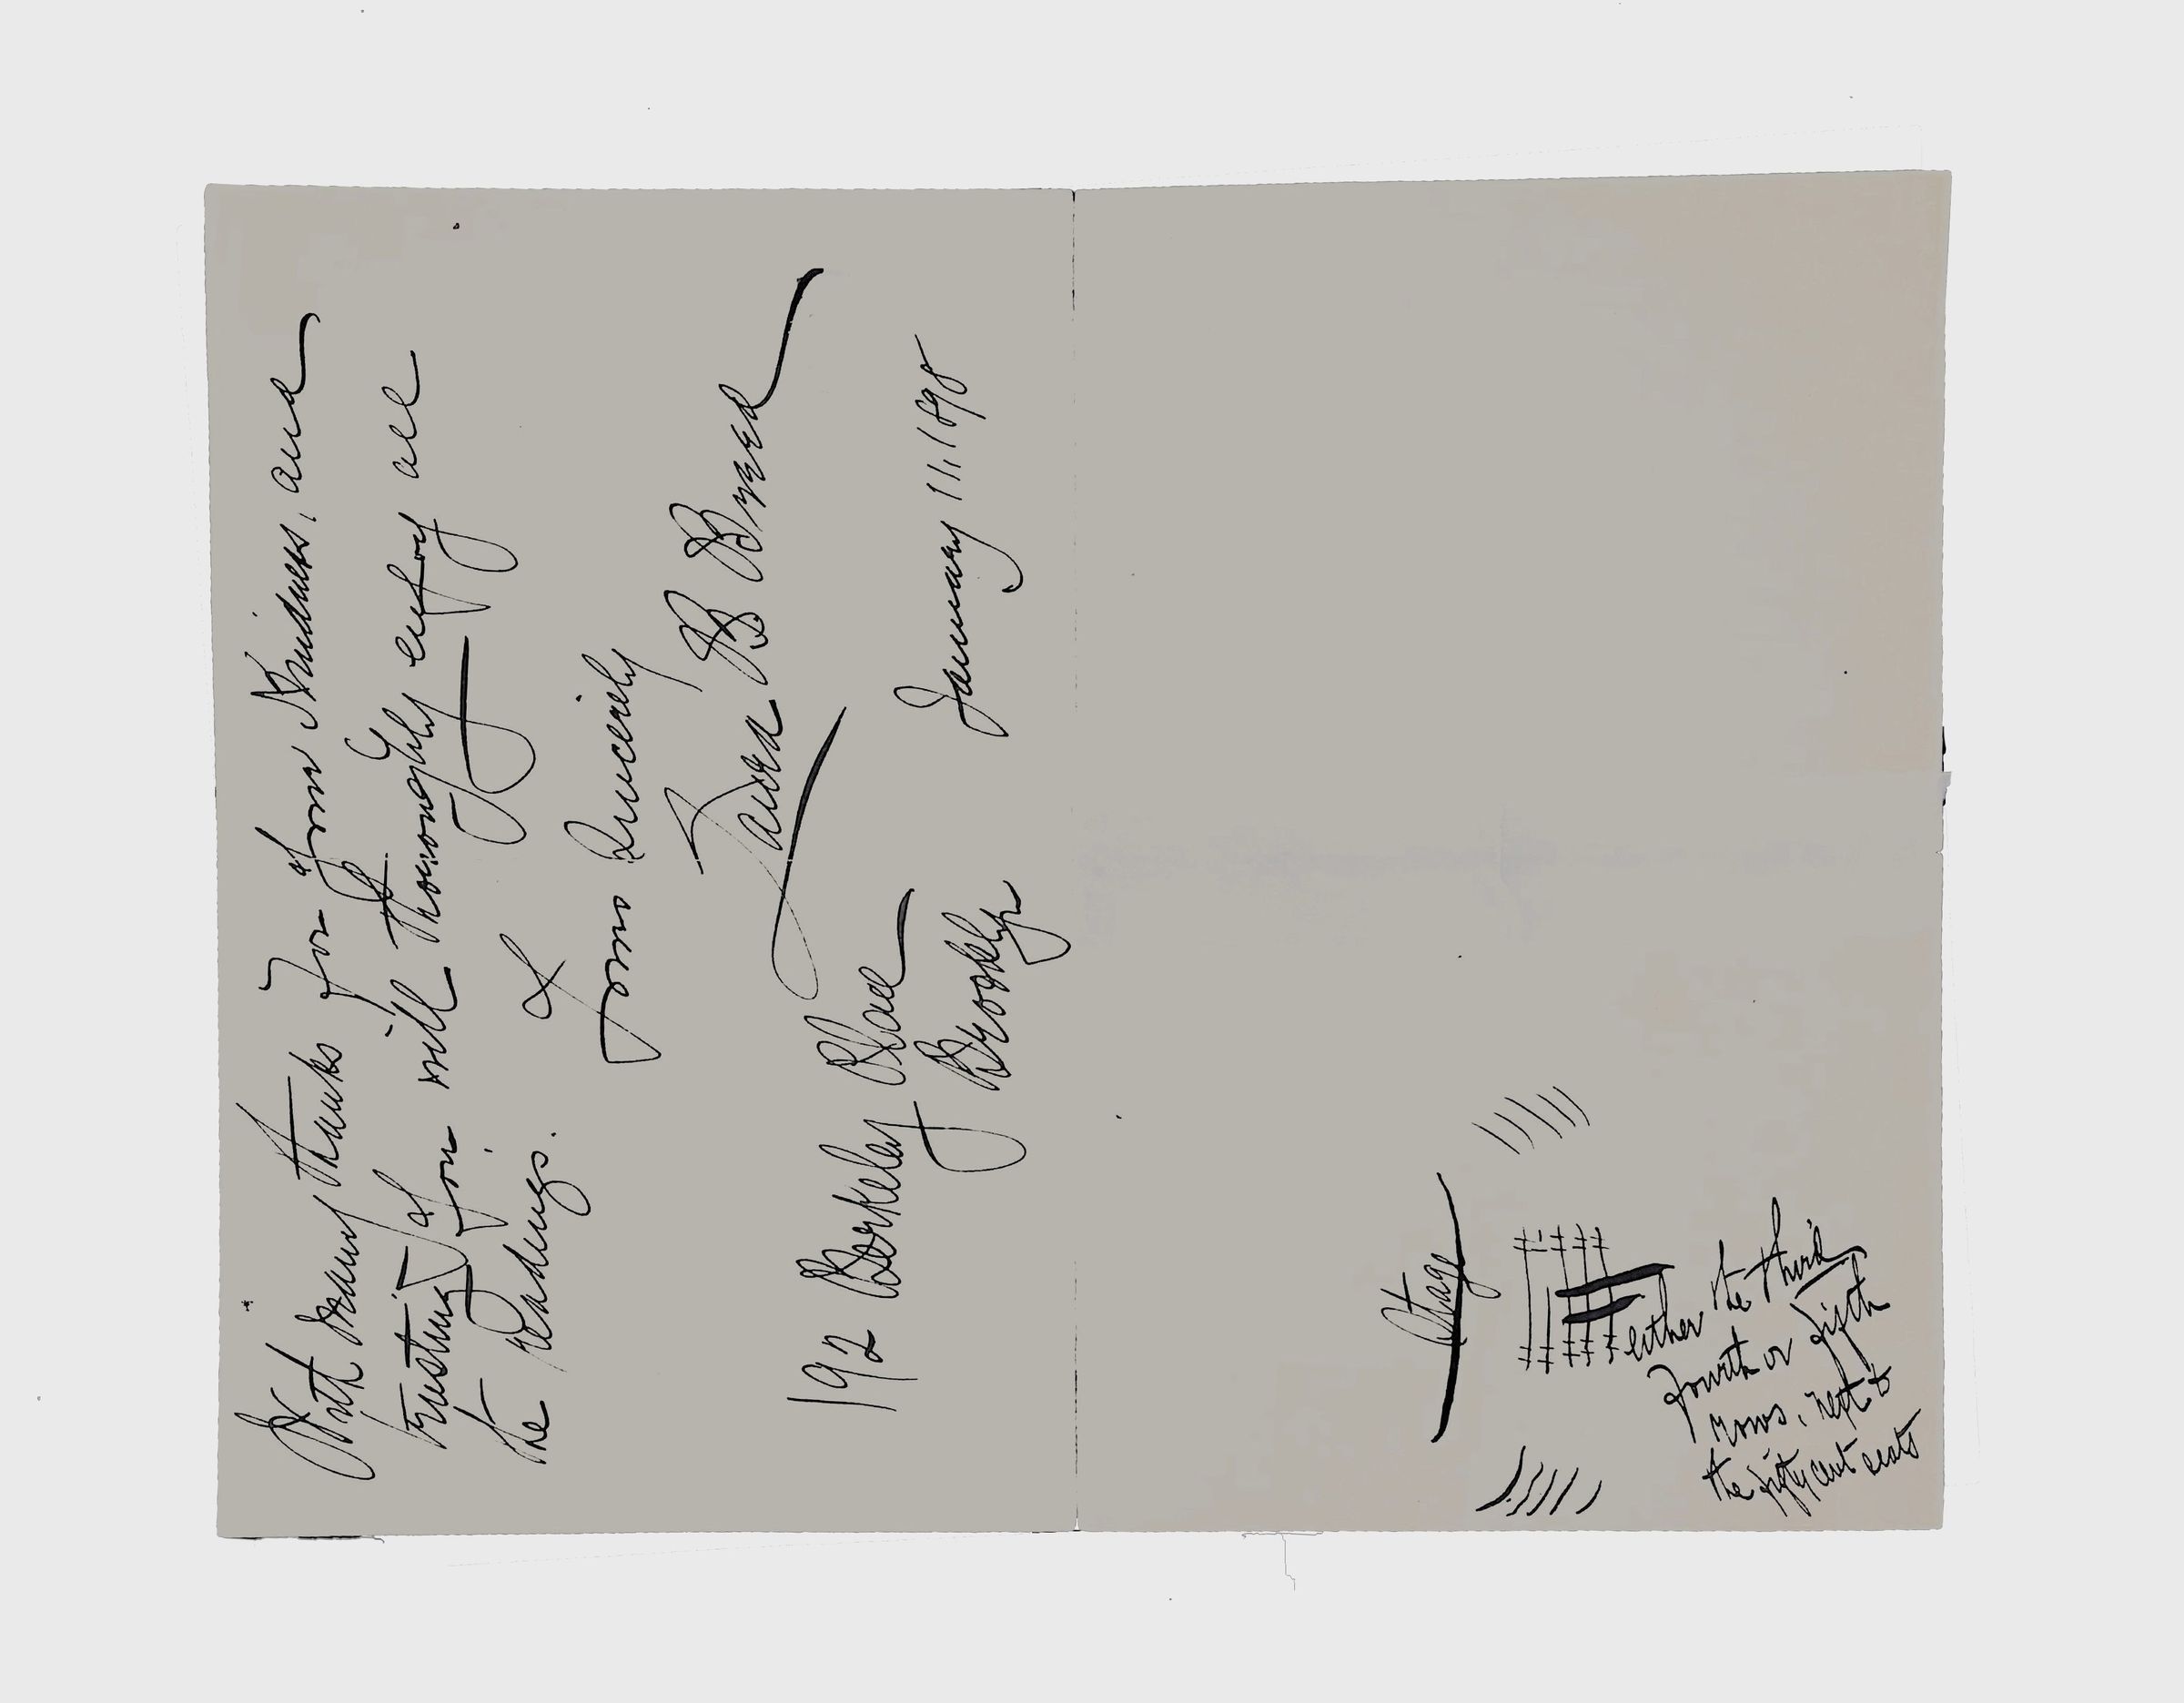 With many thanks for your kindness, and
trusting you will thoroughly enjoy all
the readings.
I
Yours Sincerely
Laura B
192 Berkeley Place
Brooklyn
January 11, 1898
Stage
either the third
fourth or fifth
rows, next to
the fifty cent seats